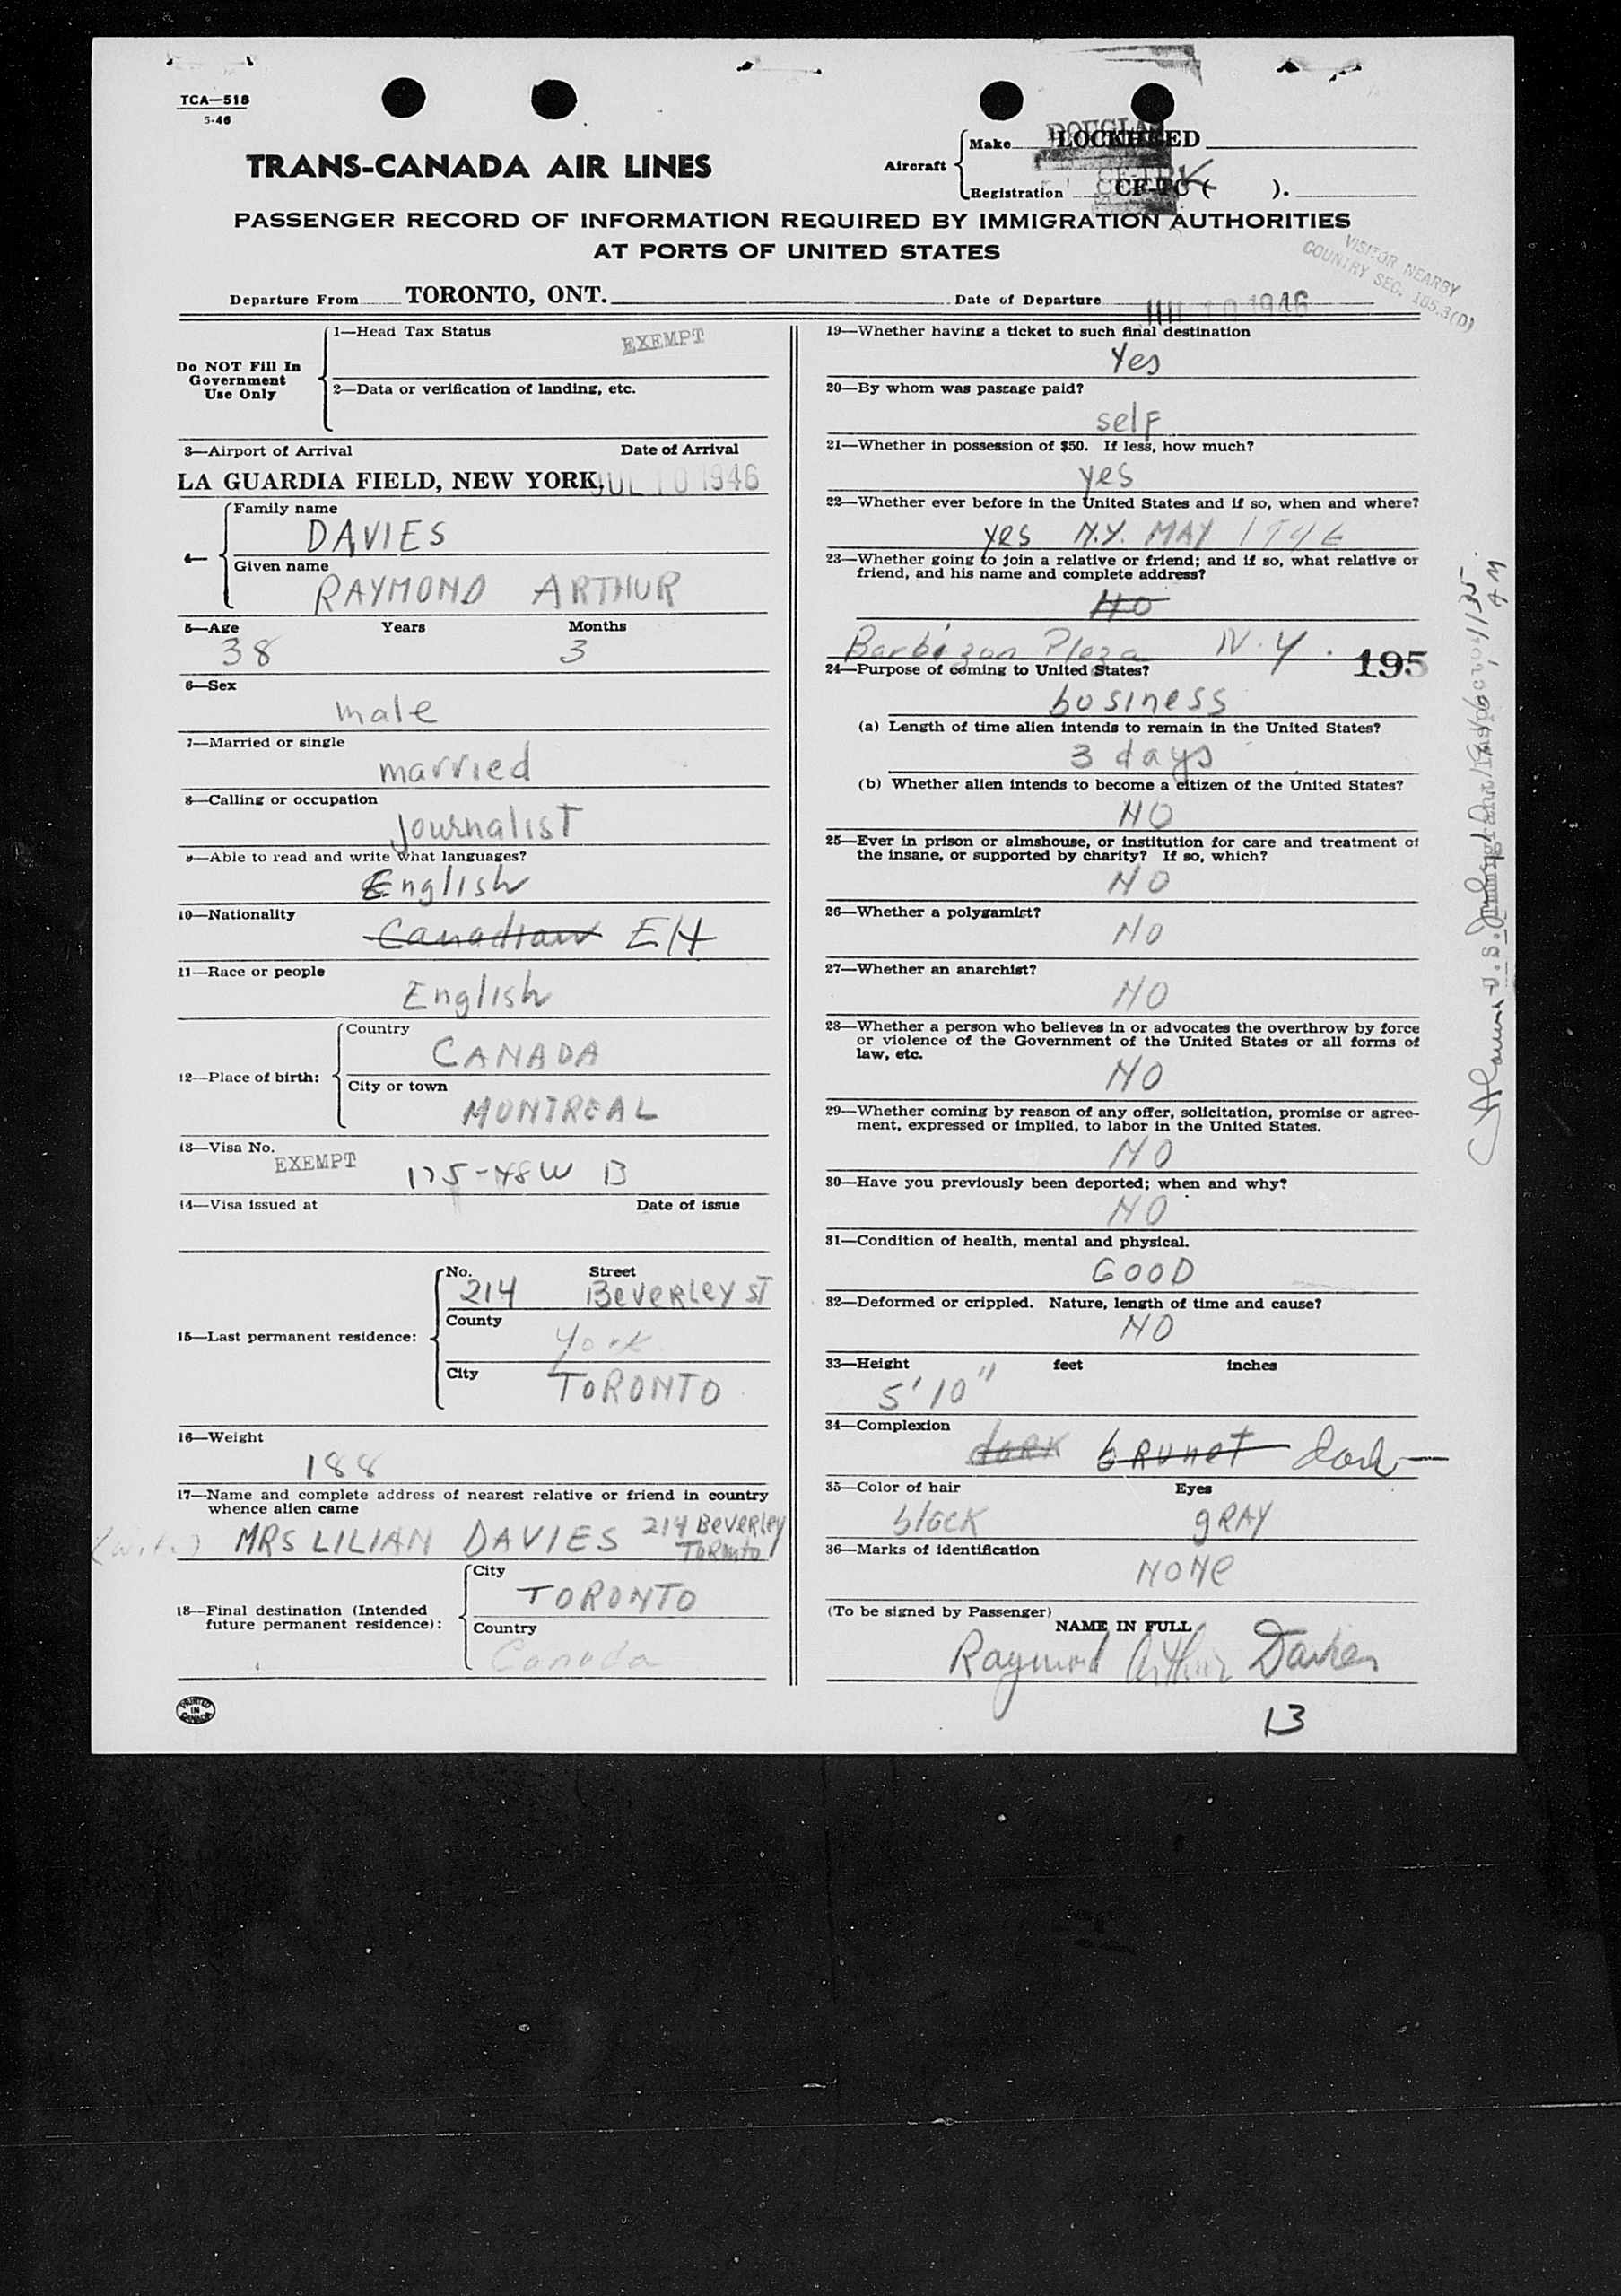 TCA—518
5-46
TRANS-CANADA AIR LINES
Aircraft
Make DOUGLAS LOCKHEED
Registration CF-TC ( ).
PASSENGER RECORD OF INFORMATION REQUIRED BY IMMIGRATION AUTHORITIES
AT PORTS OF UNITED STATES
VISITOR NEARBY
COUNTRY SEC. 105.3(D)
Departure From TORONTO, ONT. Date of Departure 10 1946
Do NOT Fill In
Government
Use Only
1—Head Tax Status EXEMPT
2—Data or verification of landing, etc.
3—Airport of Arrival Date of Arrival
LA GUARDIA FIELD, NEW YORK, JUL 10 1946
4—
Family name
DAVIES
Given name
RAYMOND ARTHUR
5—Age Years Months
38 3
6—Sex
male
7—Married or single
married
8—Calling or occupation
journalist
9—Able to read and write what languages?
English
10—Nationality
Canadian EH
11—Race or people
English
12—Place of birth:
Country
CANADA
City or town
MONTREAL
13—Visa No.
EXEMPT 175-48W B
14—Visa issued at Date of issue
15—Last permanent residence:
No. Street
214 Beverley ST
County
York
City
TORONTO
16—Weight
188
17—Name and complete address of nearest relative or friend in country
whence alien came
(wife) MRS LILIAN DAVIES 214 Beverley
Toronto
18—Final destination (Intended
future permanent residence):
City
TORONTO
Country
Canada
PRINTED
IN
CANADA
19—Whether having a ticket to such final destination
Yes
20—By whom was passage paid?
self
21—Whether in possession of $50. If less, how much?
yes
22—Whether ever before in the United States and if so, when and where?
yes N.Y. MAY 1946
23—Whether going to join a relative or friend; and if so, what relative or
friend, and his name and complete address?
NO
Barbizon Plaza N.Y. 195
24—Purpose of coming to United States?
business
(a) Length of time alien intends to remain in the United States?
3 days
(b) Whether alien intends to become a citizen of the United States?
NO
25—Ever in prison or almshouse, or institution for care and treatment of
the insane, or supported by charity? If so, which?
NO
26—Whether a polygamist?
NO
27—Whether an anarchist?
NO
28—Whether a person who believes in or advocates the overthrow by force
or violence of the Government of the United States or all forms of
law, etc.
NO
29—Whether coming by reason of any offer, solicitation, promise or agree-
ment, expressed or implied, to labor in the United States.
NO
30—Have you previously been deported; when and why?
NO
31—Condition of health, mental and physical.
GOOD
32—Deformed or crippled. Nature, length of time and cause?
NO
33—Height feet inches
5' 10"
34—Complexion
dark brunet dark
35—Color of hair Eyes
black gray
36—Marks of identification
None
(To be signed by Passenger)
NAME IN FULL
Raymond Arthur Davies
13